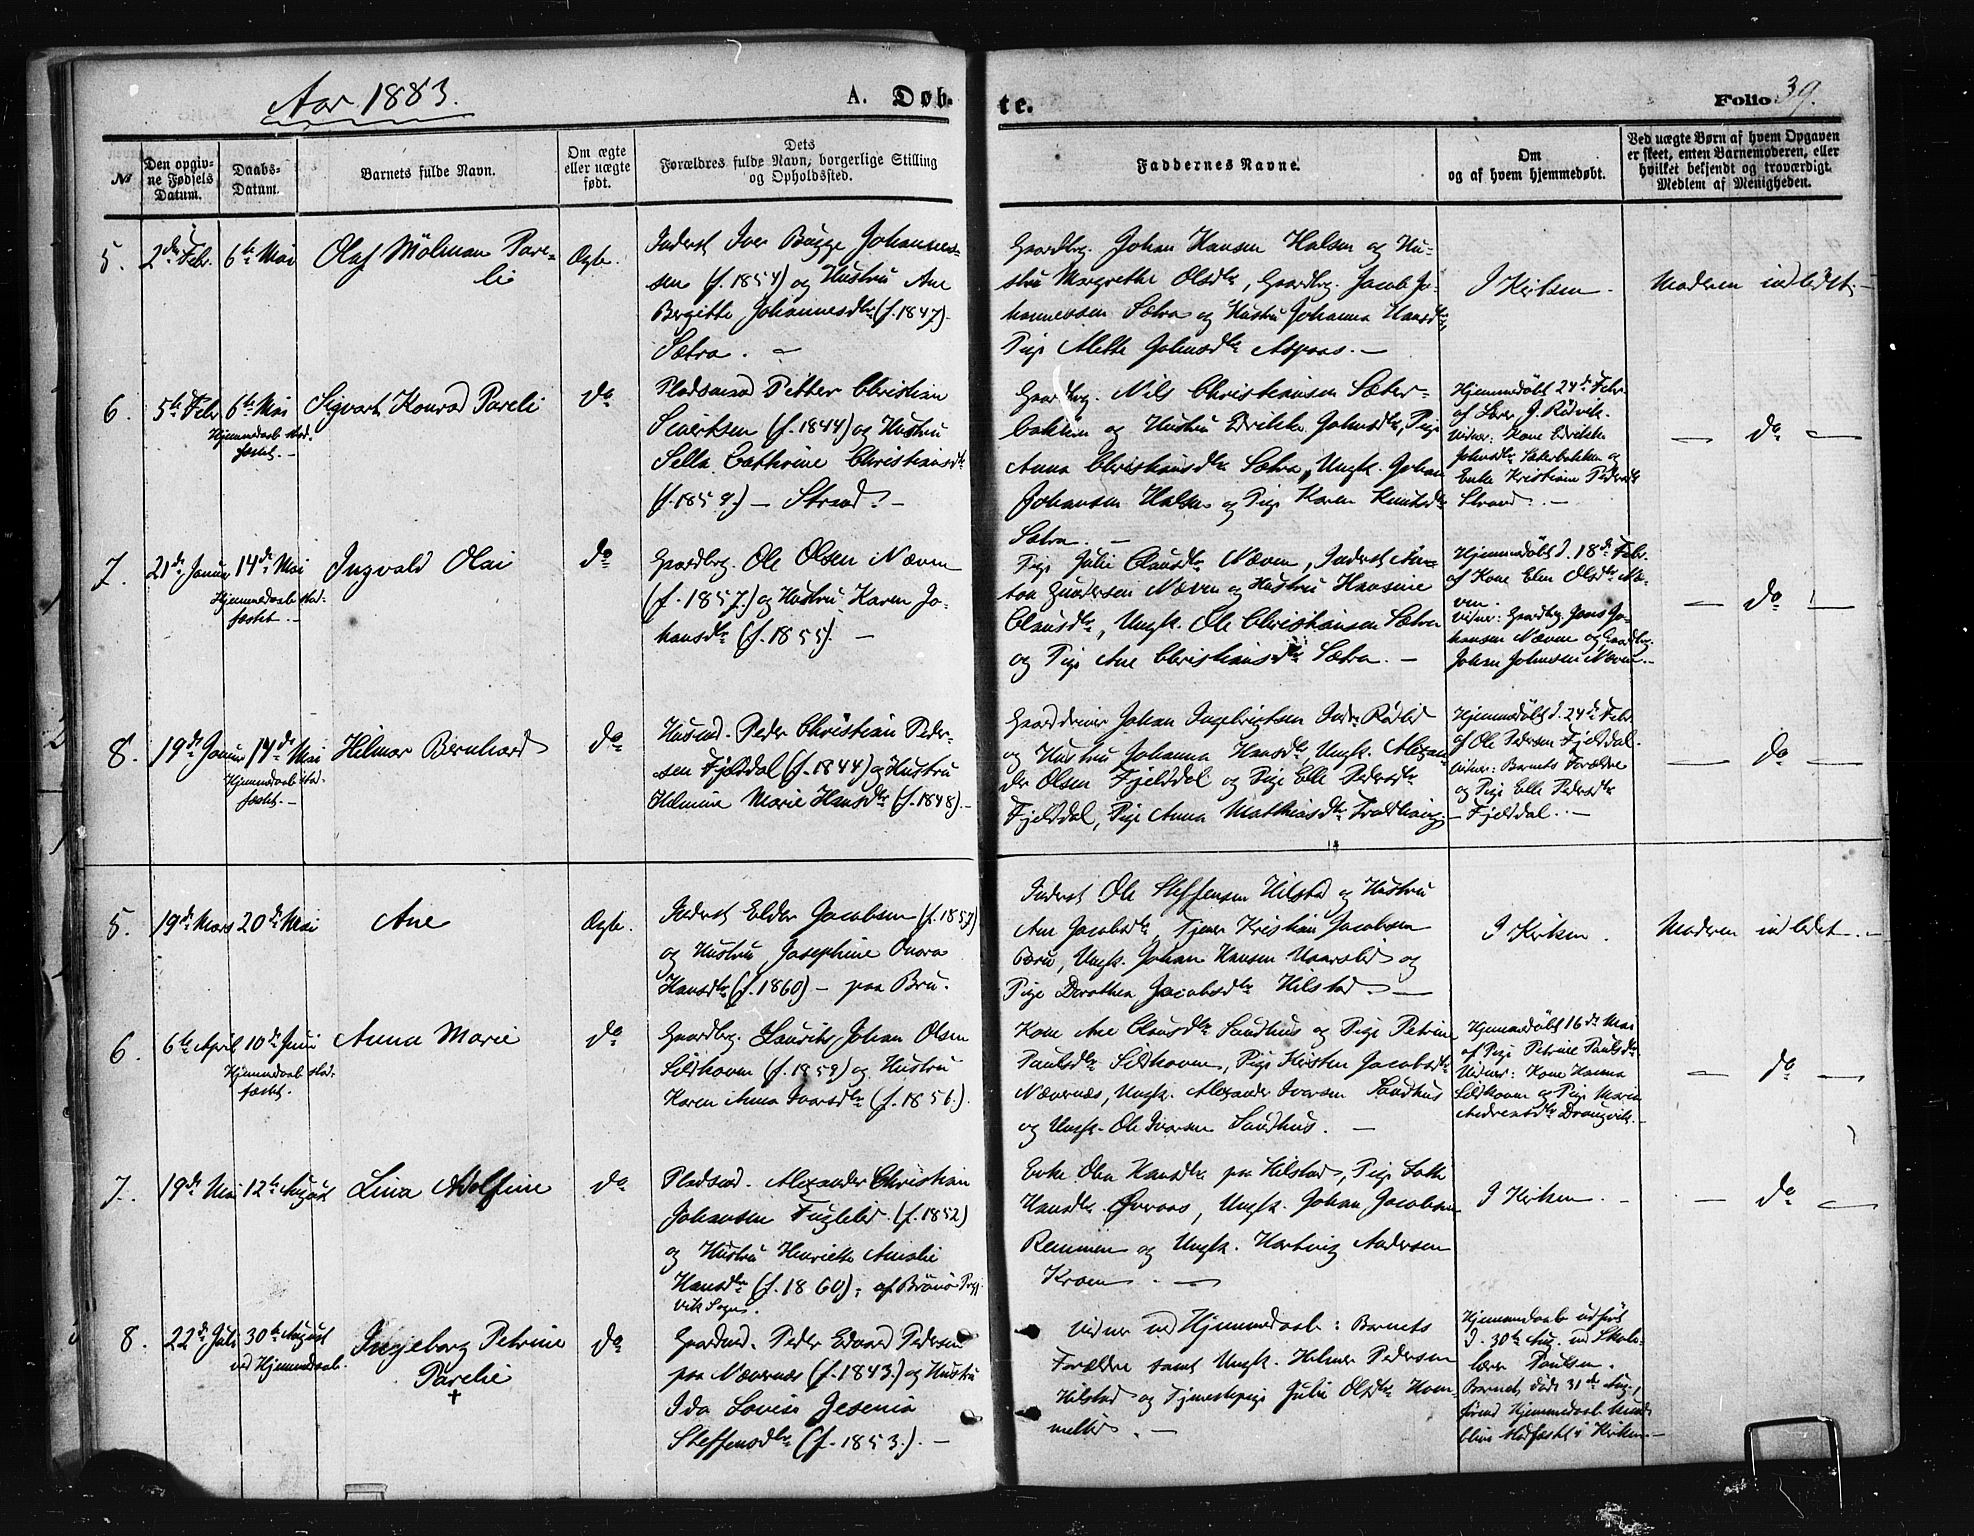 Aar 1883.
A. Døb-
te.
Folio 39.
No
Den opgiv-
ne Fødsels
Datum.
Daabs-
Datum.
Barnets fulde Navn.
Om ægte
eller uægte
født.
Dets
Forældres fulde Navn, borgerlige Stilling
og Opholdssted.
Faddernes Navne.
Om
og af hvem hjemmedøbt.
Ved uægte Børn af hvem Opgaven
er skeet, enten Barnemoderen, eller
hvilket bekjendt og troværdigt
Medlem af Menigheden.
5. 2den Febr. 6te Mai
Olaf Mölman Pare-
li
Ægte.
Inderst Iver Bugge Johannes-
sen (f. 1854) og Hustru Ane
Bergitte Johannesdtr (f. 1847)
Sætra. —
Gaardbrg. Johan Hansen Halsen og Hu-
stru Margrethe Olsdtr, Gaardbrg. Jacob Jo-
hannessen Sætra og Hustru Johanna Hansdtr,
Pige Alette Johnsdtr Aspaas. —
I Kirken.
Moderen indledet. —
6. 5te Febr 6te Mai
Hjemmedaab stad-
fæstet. —
Sigvart Konrad Pareli
do
Pladsmand Petter Christian
Sivertsen (f. 1844) og Hustru
Sella Cathrine Christiansdtr
(f. 1859.) — Strand. —
Gaardbrg. Nils Christiansen Sæter-
bakken og Hustru Edrikke Johnsdtr, Pige
Anna Christiansdtr Sætra, Ungk. Johan
Johansen Halsen og Pige Karen Knutsdtr
Sætra. —
Hjemmedøbt 24de Febr.
af Lærer J. Rödvik.
Vidner: Kone Edrikke
Johnsdtr Sæterbakken og
Enke Kristiane Pedersdtr
Strand. —
— do —
7. 21de Januar 14de Mai
Hjemmedaab stad-
fæstet. —
Ingvald Olai
do
Gaardbrg. Ole Olsen Næven
(f. 1857.) og Hustru Karen Jo-
hansdtr (f. 1855). —
Pige Julie Clausdtr Næven, Inderst An-
ton Gundersen Næven og Hustru Hansine
Clausdtr, Ungk. Ole Christiansen Sætra
og Pige Ane Christiansdtr Sætra. —
Hjemmedøbt d. 18de Febr.
af Kone Elen Olsdtr Næ-
ven.
Vidner: Gaardbrg. Jens Jo-
hansen Næven og Gaardbrg.
Johan Johnsen Næven. —
— do —
8. 19de Januar 14de Mai
Hjemmedaab stad-
fæstet. —
Hilmar Bernhard
do
Husmd. Peder Christian Peder-
sen Fjelddal (f. 1844) og Hustru
Helmine Marie Hansdtr (f. 1848). —
Gaarddriver Johan Ingebrigtsen Indre Rödlid
og Hustru Johanna Hansdtr, Ungk. Alexan-
der Olsen Fjelddal og Pige Elle Pedersdtr
Fjelddal, Pige Anna Mathiasdtr
Hjemmedøbt d. 24de Febr.
af Ole Pedersen Fjelddal.
Vidner: Barnets Forældre
og Pige Elle Pedersdtr
— Fjelddal. —
— do —
5. 19de Mars 20de Mai
Ane
Ægte.
Inderst Elder Jacobsen (f. 1857)
og Hustru Josephine Onora
Hansdtr (f. 1860) — paa Bru.
Inderst Ole Steffensen Hilstad og Hustru
Ane Jacobsdtr, Tjener Kristian Jacobsen
Bru, Ungk. Johan Hansen Uaarslid og
Pige Dorothea Jacobsdtr Hilstad. —
I Kirken.
Moderen indledet. —
6. 6te April 10de Juni
Hjemmedaab stad-
fæstet.
Anna Marie
do
Gaardbrg. Laurits Johan Olsen
Sildhoven (f. 1859) og Hustru
Karen Anna Ivarsdtr (f. 1856).
Kone Ane Clausdtr Sandhus og Pige Petrine
Paulsdtr Sildhoven, Pige Kirsten Jacobsdtr
Nævernæs, Ungk. Alexander Ivarsen Sandhus
og Ungk. Ole Ivarsen Sandhus. —
Hjemmedøbt 16de Mai
af Pige Petrine Paulsdtr.
Vidner: Kone Hanna
Sildhoven og Pige Marie
Andreasdtr Drangvik.
— do —
7. 19de Mai 12te August
Lina Adolfine
do
Pladsmd. Alexander Christian
Johansen Fuglelid (f. 1852)
og Hustru Henriette Amalie
Hansdtr (f. 1860); af Brønø Præ-
vik Sogn.
Enke Olea Hansdtr paa Hilstad, Pige Lotte
Hansdtr Øvraas, Ungk. Johan Jacobsen
Remmen og Ungk. Hartvig Andersen
Kroen. —
I Kirken. —
— do —
8. 22de Juli 30te August
ved Hjemmedaab.
Ingeborg Petrine
Parelie
†
do
Gaardmd. Peder Edvard Pedersen
paa Nævernæs (f. 1843.) og Hustru
Ida Lovise Jesenia
Steffensdtr (f. 1853.). —
Vidner ved Hjemmedaab: Barnets
Forældre samt Ungk. Helmer Pedersen
Hilstad og Tjenestepige Julie Olsdtr Hom-
melid. —
Hjemmedaab udført
d. 30te Aug. ved Skole-
lærer Paulsen.
Barnet døde 31de Aug.,
førend Hjemmedaab kunde
blive stadfæstet i Kirken. —